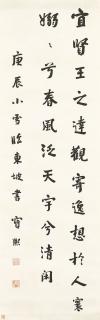 宜賢王之達觀寄逸想於人寰
嫋嫋兮春風泛天宇兮清閑
庚辰小雪臨東坡書 寶熙